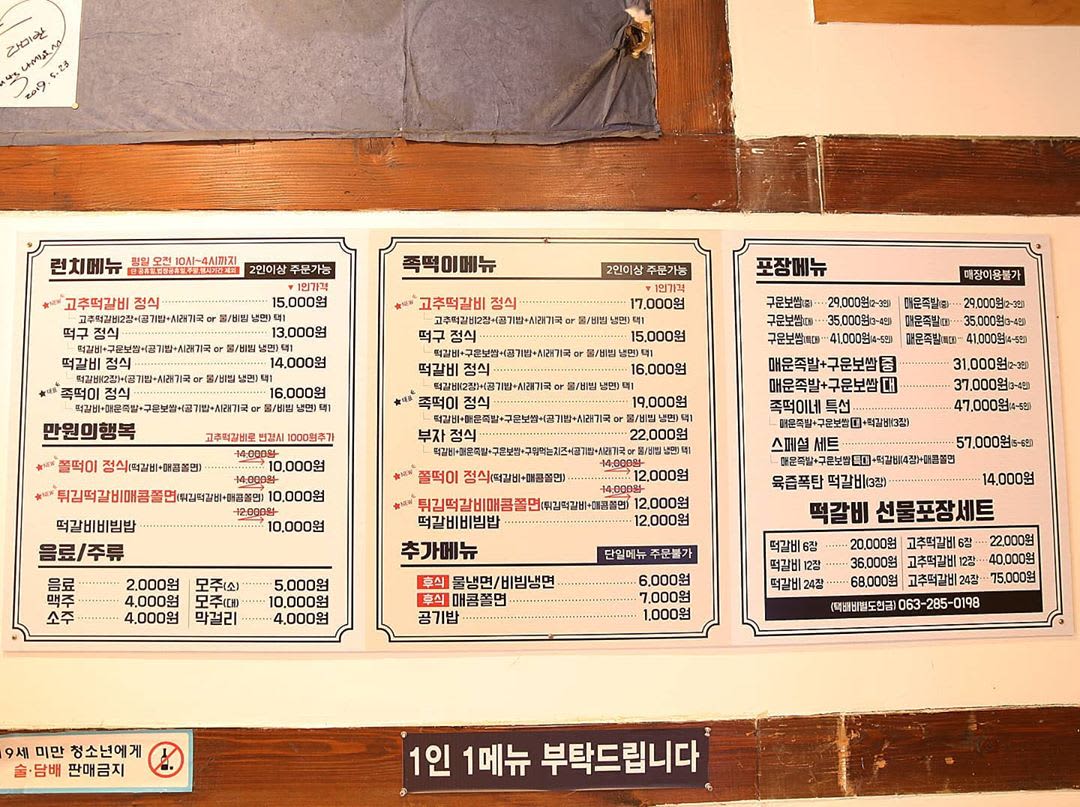 라미란
2019. 5. 23
런치메뉴 평일 오전 10시~4시까지
단 공휴일,법정공휴일,주말,행사기간 제외
2인이상 주문가능
▼ 1인가격
NEW 고추떡갈비 정식 15,000원
고추떡갈비2장+(공기밥+시래기국 or 물/비빔 냉면) 택1
떡구 정식 13,000원
떡갈비+구운보쌈+(공기밥+시래기국 or 물/비빔 냉면) 택1
떡갈비 정식 14,000원
떡갈비(2장)+(공기밥+시래기국 or 물/비빔 냉면) 택1
족떡이 정식 16,000원
떡갈비+매운족발+구운보쌈+(공기밥+시래기국 or 물/비빔 냉면) 택1
만원의행복 고추떡갈비로 변경시 1000원추가
14,000원
NEW 쫄떡이 정식(떡갈비+매콤쫄면) 10,000원
14,000원
NEW 튀김떡갈비매콤쫄면(튀김떡갈비+매콤쫄면) 10,000원
12,000원
떡갈비비빔밥 10,000원
음료/주류
음료 2,000원 모주(소) 5,000원
맥주 4,000원 모주(대) 10,000원
소주 4,000원 막걸리 4,000원
족떡이메뉴 2인이상 주문가능
▼ 1인가격
NEW 고추떡갈비 정식 17,000원
고추떡갈비2장+(공기밥+시래기국 or 물/비빔 냉면) 택1
떡구 정식 15,000원
떡갈비+구운보쌈+(공기밥+시래기국 or 물/비빔 냉면) 택1
떡갈비 정식 16,000원
떡갈비(2장)+(공기밥+시래기국 or 물/비빔 냉면) 택1
족떡이 정식 19,000원
떡갈비+매운족발+구운보쌈+(공기밥+시래기국 or 물/비빔 냉면) 택1
부자 정식 22,000원
떡갈비+매운족발+구운보쌈+구워먹는치즈+(공기밥+시래기국 or 물/비빔 냉면) 택1
14,000원
NEW 쫄떡이 정식(떡갈비+매콤쫄면) 12,000원
14,000원
NEW 튀김떡갈비매콤쫄면(튀김떡갈비+매콤쫄면) 12,000원
떡갈비비빔밥 12,000원
추가메뉴 단일메뉴 주문불가
후식 물냉면/비빔냉면 6,000원
후식 매콤쫄면 7,000원
공기밥 1,000원
포장메뉴 매장이용불가
구운보쌈(중) 29,000원(2~3인) 매운족발(중) 29,000원(2~3인)
구운보쌈(대) 35,000원(3~4인) 매운족발(대) 35,000원(3~4인)
구운보쌈(특대) 41,000원(4~5인) 매운족발(특대) 41,000원(4~5인)
매운족발+구운보쌈 中 31,000원(2~3인)
매운족발+구운보쌈 대 37,000원(3~4인)
족떡이네 특선 47,000원(4~5인)
매운족발+구운보쌈 대+떡갈비(3장)
스페셜 세트 57,000원(5~6인)
매운족발+구운보쌈 특대+떡갈비(4장)+매콤쫄면
육즙폭탄 떡갈비(3장) 14,000원
떡갈비 선물포장세트
떡갈비 6장 20,000원 고추떡갈비 6장 22,000원
떡갈비 12장 36,000원 고추떡갈비 12장 40,000원
떡갈비 24장 68,000원 고추떡갈비 24장 75,000원
(택배비별도현금) 063-285-0198
19세 미만 청소년에게
술·담배 판매금지
1인 1메뉴 부탁드립니다